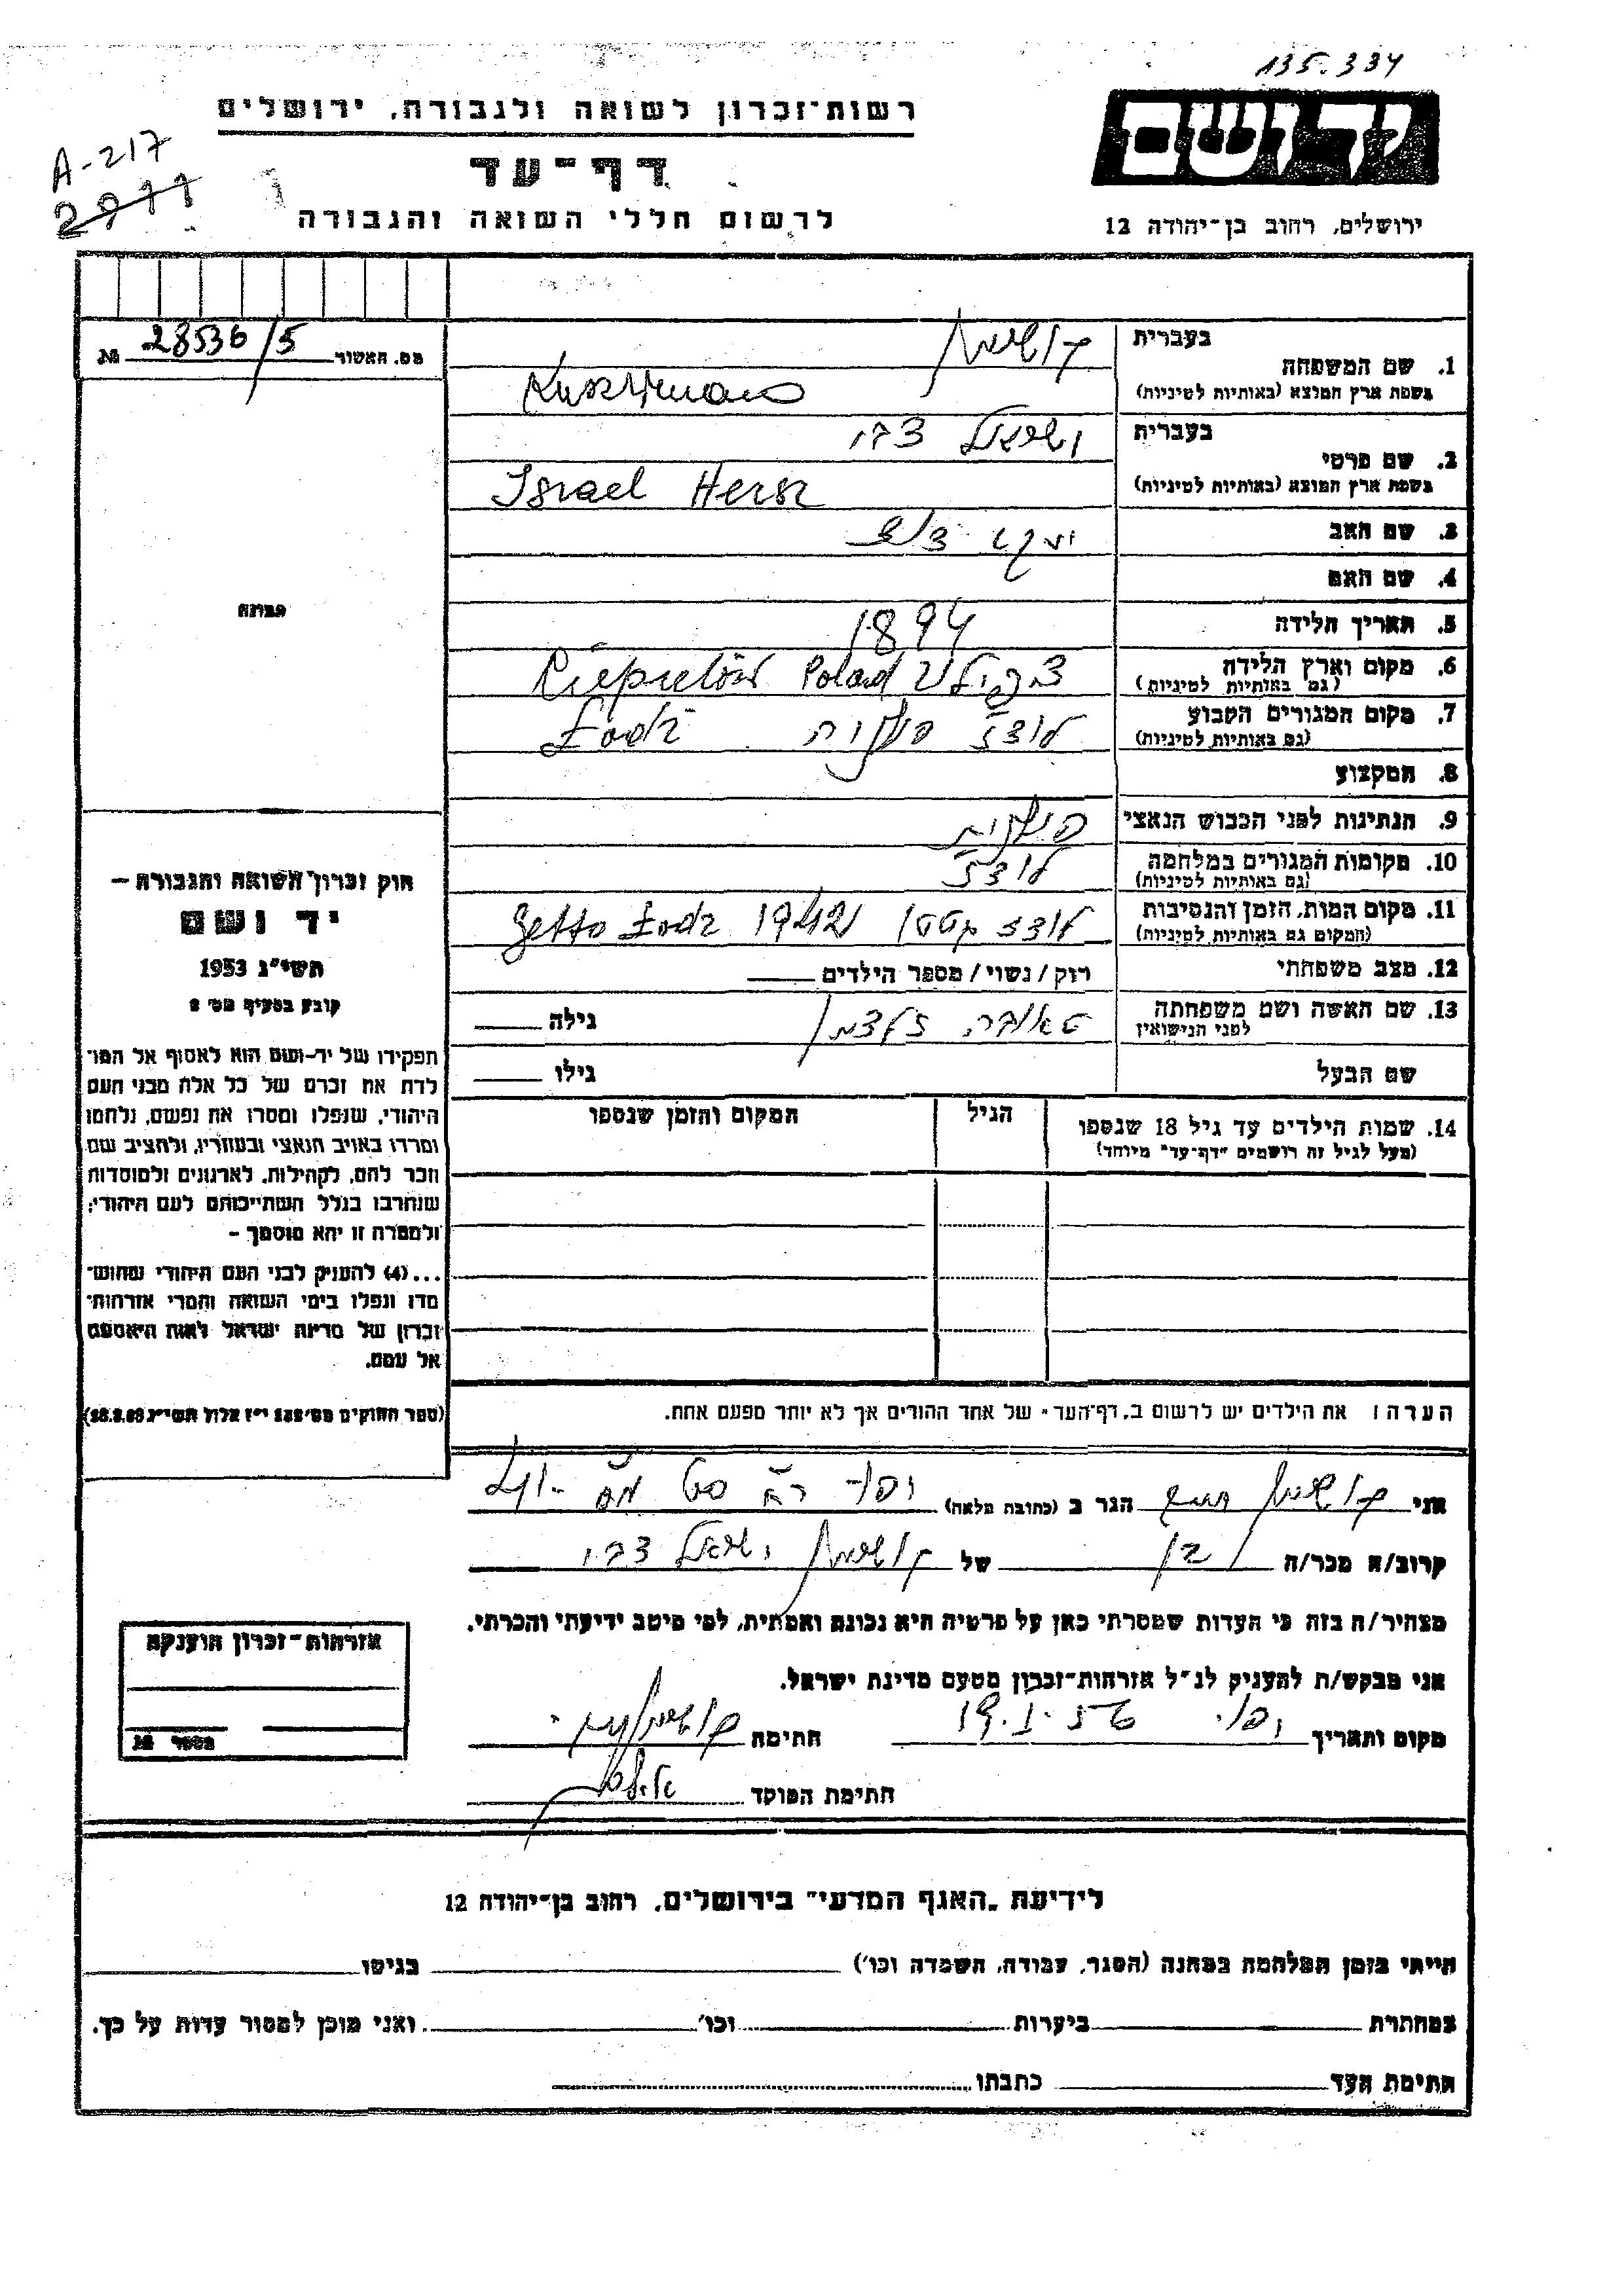 135.334
רשות־זכרון לשואה ולגבורה, ירושלים
יד ושם
A-217
דף־עד
2911
לרשום חללי השואה והגבורה
ירושלים, רחוב בן־יהודה 12
מס. האשור 28536/5 №
בעברית
1. שם המשפחה קושימן
בשפת ארץ המוצא (באותיות לטיניות)
בעברית ישראל צבי
2. שם פרטי
בשפת ארץ המוצא (באותיות לטיניות) Israel Hersz
3. שם האב יעקב
4. שם האם
תמונה
5. תאריך הלידה 1894
6. מקום וארץ הלידה Poland
(גם באותיות לטיניות)
7. מקום המגורים הקבוע לודז פולניה Łodź
(גם באותיות לטיניות)
8. המקצוע
9. הנתינות לפני הכבוש הנאצי פולנית
10. מקומות המגורים במלחמה לודז
(גם באותיות לטיניות)
11. מקום המות, הזמן והנסיבות לודז גטו 1942 Getto Łodz
(המקום גם באותיות לטיניות)
12. מצב משפחתי רוק/נשוי/מספר הילדים
13. שם האשה ושם משפחתה גילה
לפני הנישואין
שם הבעל גילו
14. שמות הילדים עד גיל 18 שנספו הגיל המקום והזמן שנספו
(מעל לגיל זה רושמים "דף־עד" מיוחד)
חוק זכרון השואה והגבורה –
יד ושם
תשי"ג 1953
קובע בסעיף מס' 2
תפקידו של יד-ושם הוא לאסוף אל המו־
לדת את זכרם של כל אלה מבני העם
היהודי, שנפלו ומסרו את נפשם, נלחמו
ומרדו באויב הנאצי ובעוזריו, ולהציב שם
וזכר להם, לקהילות, לארגונים ולמוסדות
שנחרבו בגלל השתייכותם לעם היהודי;
ולמטרה זו יהא מוסמך –
...(4) להעניק לבני העם היהודי שהוש־
מדו ונפלו בימי השואה והמרי אזרחות־
זכרון של מדינת ישראל לאות היאספם
אל עמם.
(ספר החוקים מס' 132 י"ז אלול תשי"ג 28.8.53)
הערה: את הילדים יש לרשום ב"דף־העד" של אחד ההורים אך לא יותר מפעם אחת.
אני קושימן הגר ב (כתובת מלאה)
קרוב/ה מכר/ה בן של קושימן ישראל צבי
מצהיר/ה בזה כי העדות שמסרתי כאן על פרטיה היא נכונה ואמתית, לפי מיטב ידיעתי והכרתי.
אני מבקש/ת להעניק לנ"ל אזרחות־זכרון מטעם מדינת ישראל.
מקום ותאריך 19.I.56 חתימה
חתימת הפוקד
אזרחות־זכרון הוענקה
מספר №
לידיעת "האגף המדעי" בירושלים, רחוב בן־יהודה 12
הייתי בזמן המלחמה במחנה (הסגר, עבודה, השמדה וכו') בגיטו
במחתרת ביערות וכו' ואני מוכן למסור עדות על כך.
חתימת העד כתבתו